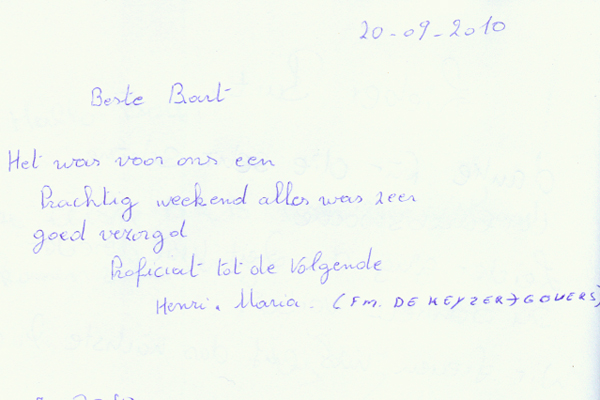 20-09-2010
Beste Bart
Het was voor ons een
Prachtig weekend alles was zeer
goed vezorgd
Proficiat tot de Volgende
Henri. Maria. (FM. DE KEYZER-GOVERS)